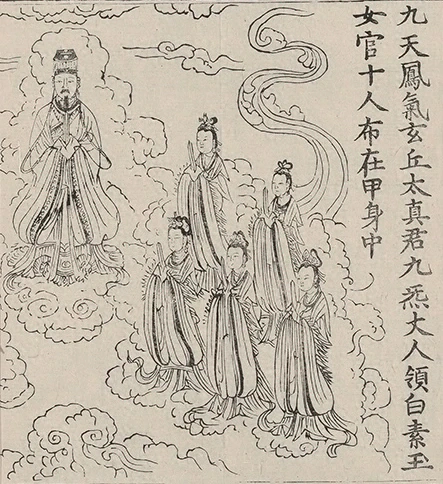 九天鳳氣玄丘太真君九炁大人領白素玉
女官十人布在甲身中